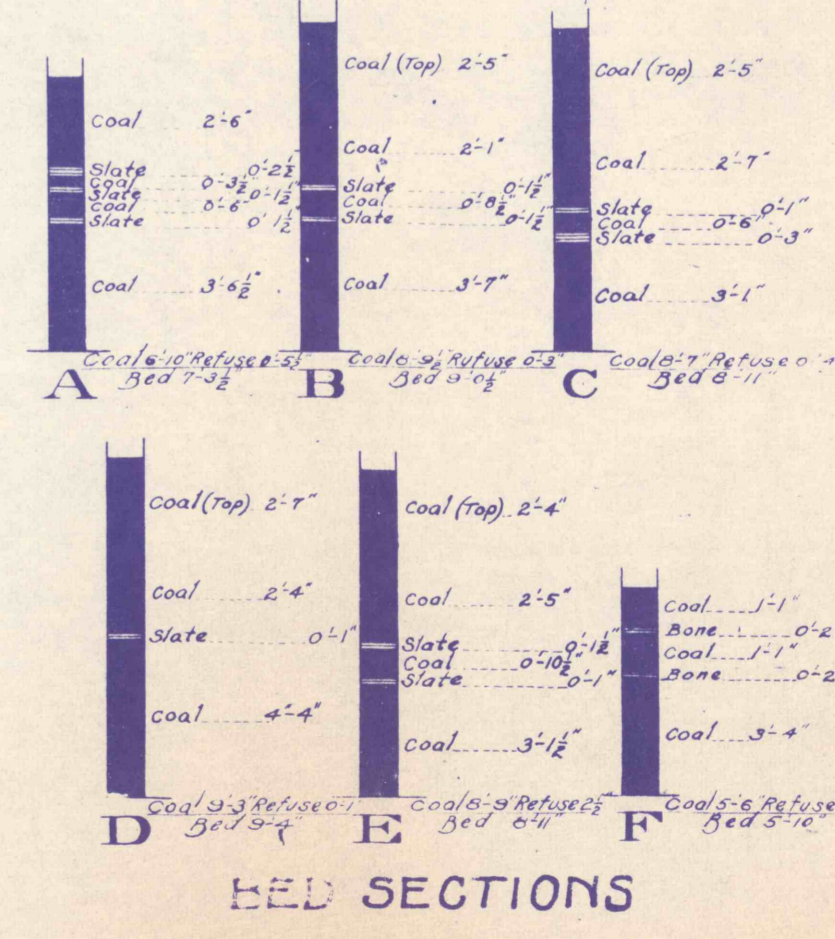 Coal 2'-6"
Slate 0'-2½
Coal 0'-3½"
Slate 0'-1½"
Coal 0'-6"
Slate 0'1½"
Coal 3'-6½"
Coal 6'-10" Refuse 0-5½"
Bed 7-3½"
A
Coal (Top) 2'-5"
Coal 2'-1"
Slate 0'-1½"
Coal 0'8½"
Slate 0'-1½"
Coal 3'-7"
Coal 8'-9½" Rufuse 0'-3"
Bed 9'-0½"
B
Coal (Top) 2'-5"
Coal 2'-7"
Slate 0'-1"
Coal 0'-6"
Slate 0'-3"
Coal 3'-1"
Coal 8'-7" Refuse 0'-4
Bed 8'-11"
C
Coal (Top) 2'-7"
Coal 2'-4"
Slate 0'-1"
Coal 4"-4"
Coal 9'-3" Refuse 0-1"
Bed 9'-4"
D
Coal (Top) 2'-4"
Coal 2'-5"
Slate 0'-1½"
Coal 0'-10½"
Slate 0'-1"
Coal 3'-1½"
Coal 8'-9" Refuse 2½"
Bed 8'-11"
E
Coal 1'-1"
Bone 0'-2
Coal 1'-1"
Bone 0'-2
Coal 3'-4"
Coal 5'-6" Refuse
Bed 5'-10"
F
BED SECTIONS